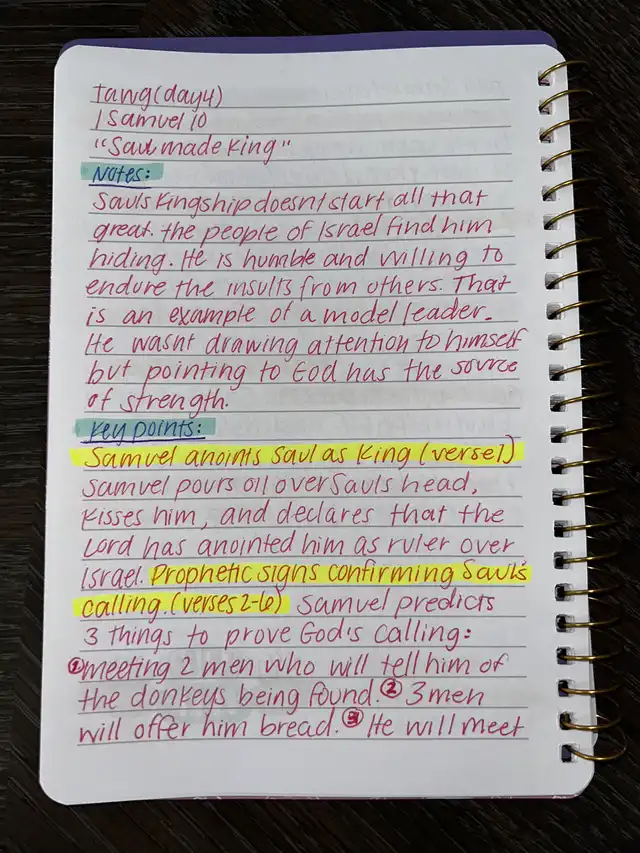 tawg (day 4)
1 Samuel 10
"Saul made King"
Notes:
Sauls Kingship doesn't start all that
great. the people of Israel find him
hiding. He is humble and willing to
endure the insults from others. That
is an example of a model leader.
He wasnt drawing attention to himself
but pointing to God has the source
of strength.
Key points:
Samuel anoints Saul as King (verse 1)
Samuel pours oil over Sauls head,
kisses him, and declares that the
Lord has anointed him as ruler over
Israel. Prophetic signs confirming Saul's
calling. (verses 2-6) Samuel predicts
3 things to prove God's calling:
① meeting 2 men who will tell him of
the donkeys being found. ② 3 men
will offer him bread. ③ He will meet